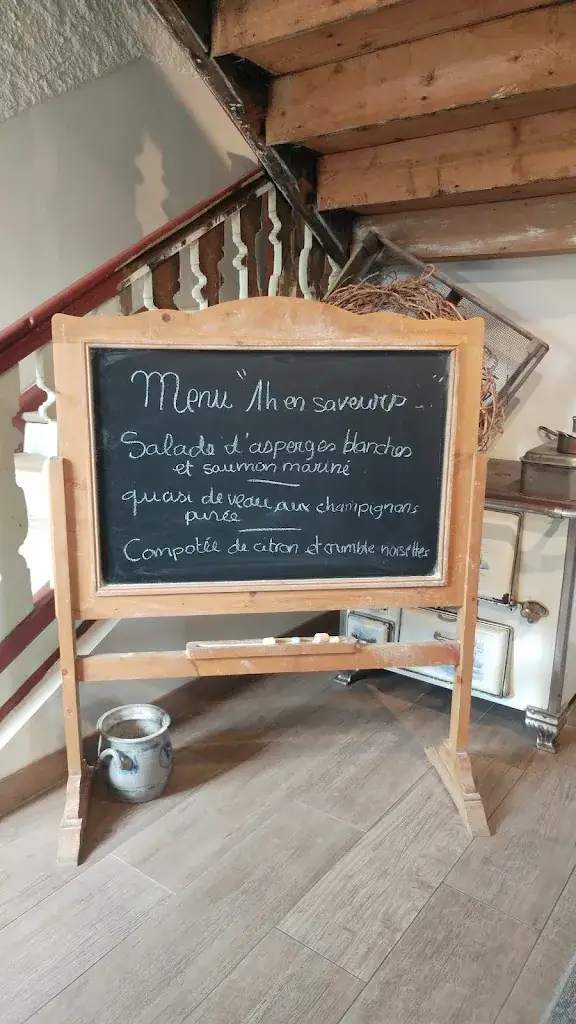 Menu "1h en saveurs..."
Salade d'asperges blanches
et saumon mariné
quasi de veau aux champignons
purée
Compotée de citron et crumble noisettes